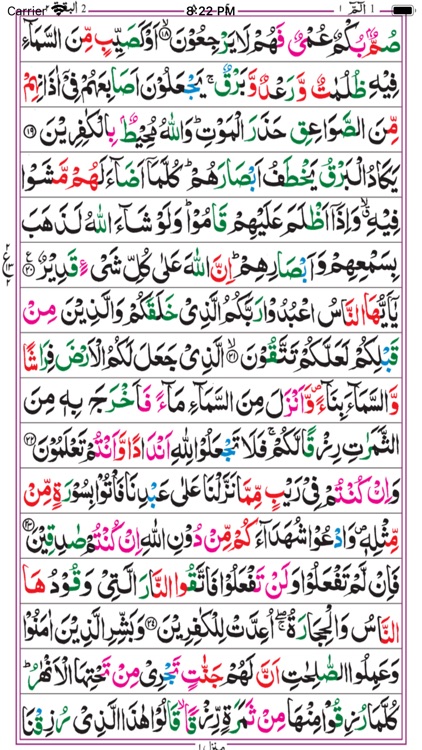 Carrier 8:22 PM
الٓمّٓ ١ ١ البقرة ٢
صُمٌّۢ بُكْمٌ عُمْیٌ فَهُمْ لَا یَرْجِعُوْنَ ۙ﴿۱۸﴾ اَوْ كَصَیِّبٍ مِّنَ السَّمَآءِ
فِیْهِ ظُلُمٰتٌ وَّ رَعْدٌ وَّ بَرْقٌ ۚ یَجْعَلُوْنَ اَصَابِعَهُمْ فِیْۤ اٰذَانِهِمْ
مِّنَ الصَّوَاعِقِ حَذَرَ الْمَوْتِ ؕ وَ اللّٰهُ مُحِیْطٌۢ بِالْكٰفِرِیْنَ ﴿۱۹﴾
یَكَادُ الْبَرْقُ یَخْطَفُ اَبْصَارَهُمْ ؕ كُلَّمَاۤ اَضَآءَ لَهُمْ مَّشَوْا
فِیْهِ ۙۗ وَ اِذَاۤ اَظْلَمَ عَلَیْهِمْ قَامُوْا ؕ وَ لَوْ شَآءَ اللّٰهُ لَذَهَبَ
بِسَمْعِهِمْ وَ اَبْصَارِهِمْ ؕ اِنَّ اللّٰهَ عَلٰی كُلِّ شَیْءٍ قَدِیْرٌ ﴿۲۰﴾ ٢ ع ١٣ ٢
یٰۤاَیُّهَا النَّاسُ اعْبُدُوْا رَبَّكُمُ الَّذِیْ خَلَقَكُمْ وَ الَّذِیْنَ مِنْ
قَبْلِكُمْ لَعَلَّكُمْ تَتَّقُوْنَ ۙ﴿۲۱﴾ الَّذِیْ جَعَلَ لَكُمُ الْاَرْضَ فِرَاشًا
وَّ السَّمَآءَ بِنَآءً ۪ وَّ اَنْزَلَ مِنَ السَّمَآءِ مَآءً فَاَخْرَجَ بِهٖ مِنَ
الثَّمَرٰتِ رِزْقًا لَّكُمْ ۚ فَلَا تَجْعَلُوْا لِلّٰهِ اَنْدَادًا وَّ اَنْتُمْ تَعْلَمُوْنَ ﴿۲۲﴾
وَ اِنْ كُنْتُمْ فِیْ رَیْبٍ مِّمَّا نَزَّلْنَا عَلٰی عَبْدِنَا فَاْتُوْا بِسُوْرَةٍ مِّنْ
مِّثْلِهٖ ۪ وَ ادْعُوْا شُهَدَآءَكُمْ مِّنْ دُوْنِ اللّٰهِ اِنْ كُنْتُمْ صٰدِقِیْنَ ﴿۲۳﴾
فَاِنْ لَّمْ تَفْعَلُوْا وَ لَنْ تَفْعَلُوْا فَاتَّقُوا النَّارَ الَّتِیْ وَ قُوْدُهَا
النَّاسُ وَ الْحِجَارَةُ ۖۚ اُعِدَّتْ لِلْكٰفِرِیْنَ ﴿۲۴﴾ وَ بَشِّرِ الَّذِیْنَ اٰمَنُوْا
وَ عَمِلُوا الصّٰلِحٰتِ اَنَّ لَهُمْ جَنّٰتٍ تَجْرِیْ مِنْ تَحْتِهَا الْاَنْهٰرُ ؕ
كُلَّمَا رُزِقُوْا مِنْهَا مِنْ ثَمَرَةٍ رِّزْقًا ۙ قَالُوْا هٰذَا الَّذِیْ رُزِقْنَا
منزل ١